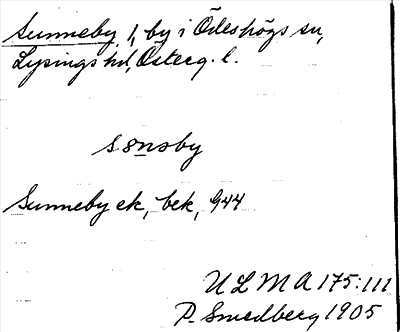 Sunneby 1, by i Ödeshögs sn,
Lysings hd, Österg. l.
sønsby
Sunneby ek, bek, 944
ULMA 175:111
P. Smedberg 1905